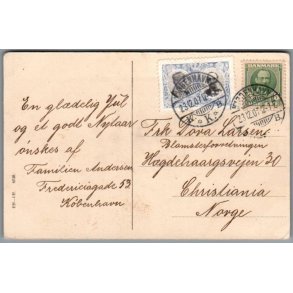 En glædelig Jul
og et godt Nytaar
ønskes af
Familien Andersen
Fredericiagade 53
København
DANMARK
KJØBENHAVN
23.12.07
K.
B
Frk Dora Larsen
Blomsterforretningen
Hegdehaugsvejen 30
Christiania
Norge